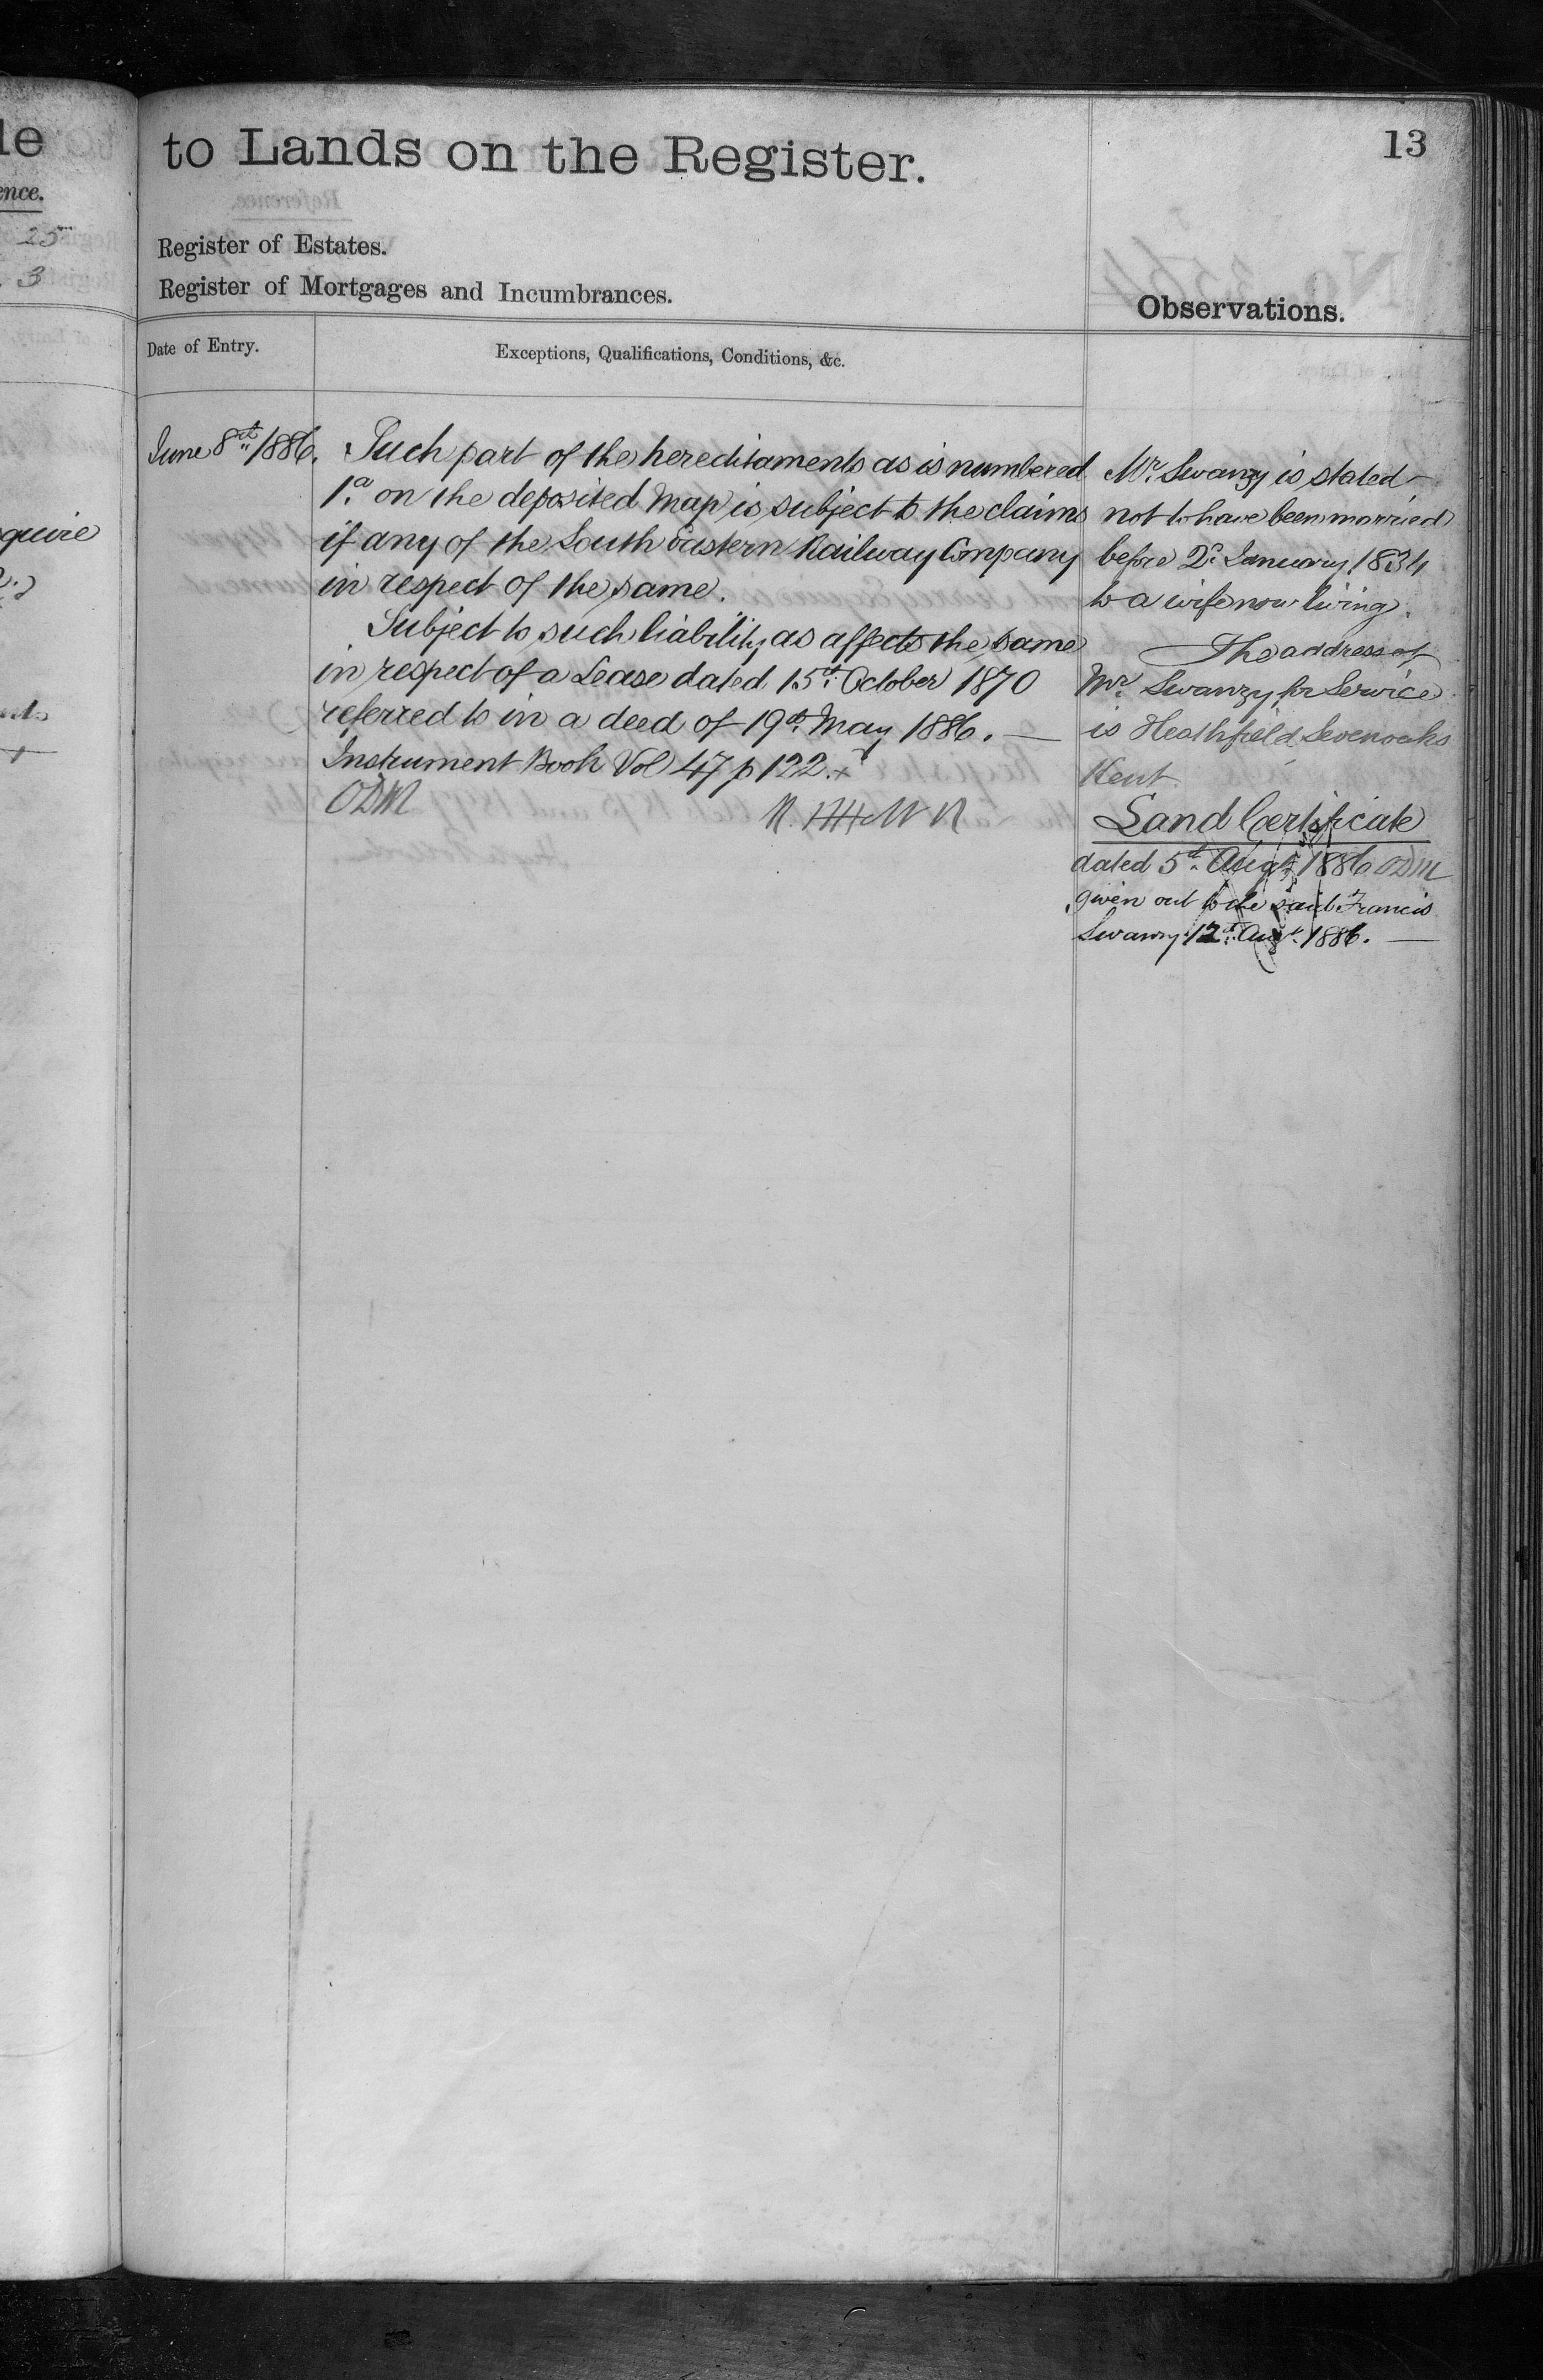 le
ence.
25
3
quire
to Lands on the Register.
13
Register of Estates.
Register of Mortgages and Incumbrances.
Observations.
Date of Entry.
Exceptions, Qualifications, Conditions, &c.
June 8th 1886.
Such part of the hereditaments as is numbered
1.a on the deposited Map is subject to the claims
if any of the South Eastern Railway Company
in respect of the same.
Subject to such liability as affects the same
in respect of a Lease dated 15th October 1870
referred to in a deed of 19th May 1886. —
Instrument Book Vol 47 p 122. x
ODM
Mr. Swanzy is stated
not to have been married
before 2d January 1834
to a wife now living.
The address of
Mr. Swanzy for Service
is Heathfield Sevenoaks
Kent
Land Certificate
dated 5th Augt. 1886 ODM
given out to the said Francis
Swanzy 12th Augt. 1886. —